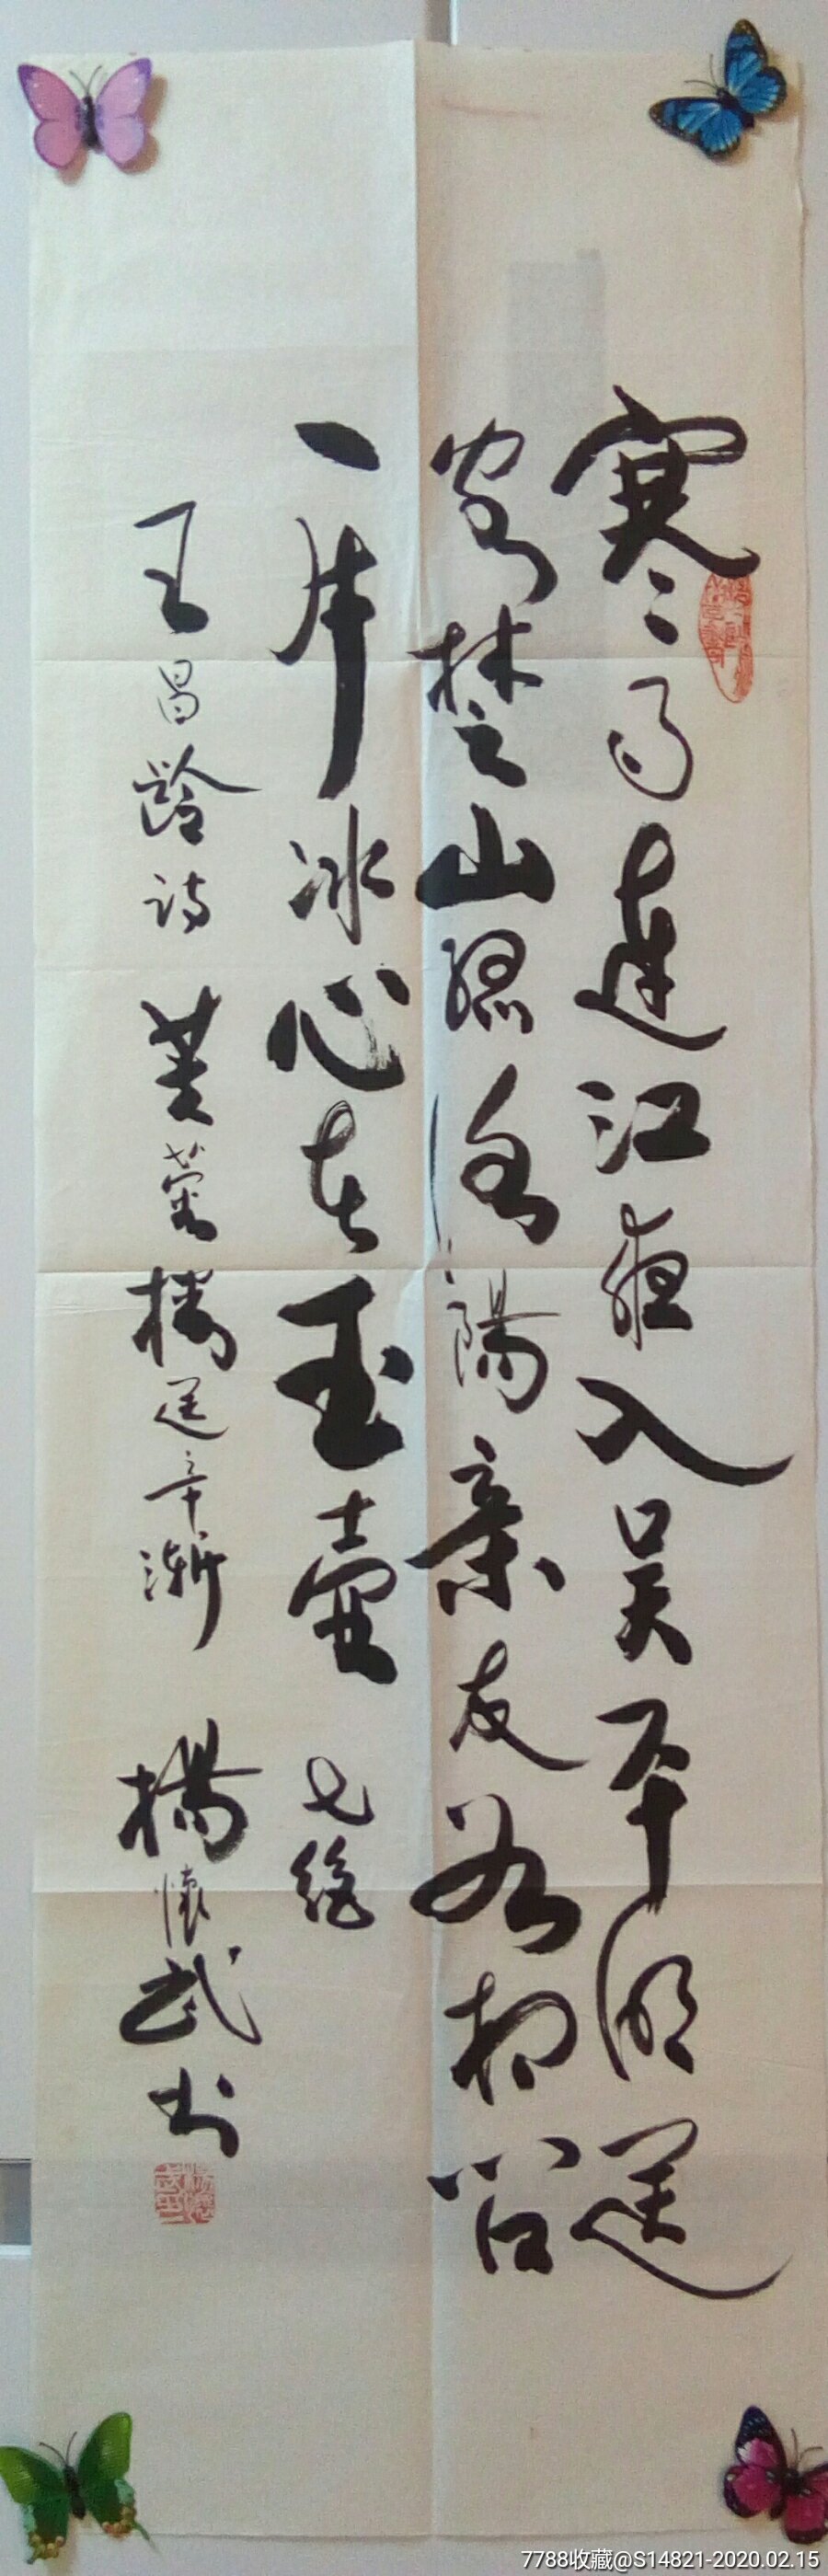 寒雨連江夜入吴平明送
客楚山孤洛陽親友如相问
一片冰心在玉壷 七絶
王昌齡詩 芙蓉樓送辛漸 楊懷武书
7788收藏@S14821-2020.02.15